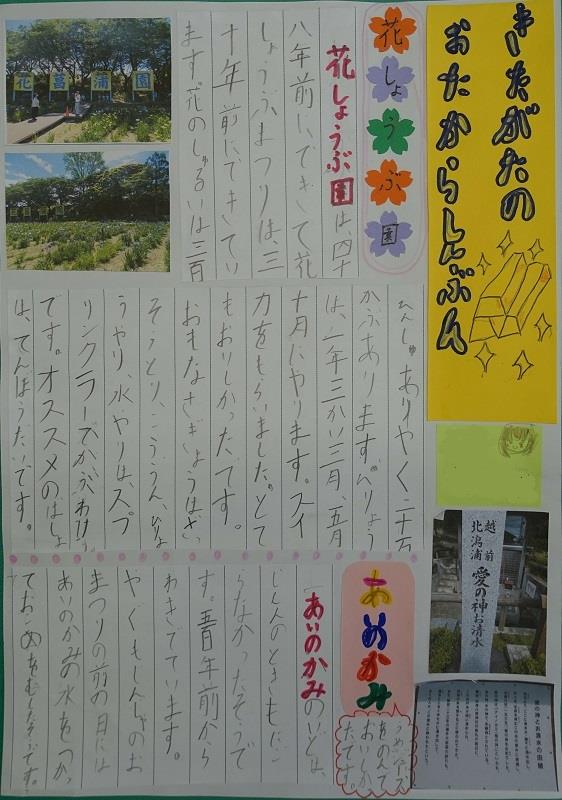 きたがたの
おたからしんぶん
花しょうぶ園
花しょうぶ園は、四十
八年前にできて花
しょうぶまつりは、三
十年前にできてい
ます。花のしゅるいは三百
へんしゅありやく二十万
かぶあります。ひりょう
は、一年三かい三月、五月
十月にやります。スイ
カをもらいました。とて
もおいしかったです。
おもなさぎょうはざっ
そうとり、こううん、ひりょ
うやり、水やりは、スプ
リンクラーでかぶわけ
です。オススメのばしょ
は、てんぼうだいです。
花菖蒲園
越前
北潟浦
愛の神お清水
あいのかみ
うめジュース
をのんで
おいしか
たです。
あいのかみのいどは、
じしんのときもにご
らなかったそうで
す。五百年前から
わきでています。
やくもじんじゃのお
まつりの前の日には
あいのかみの水をつかっ
ておこめをむしたそうです。